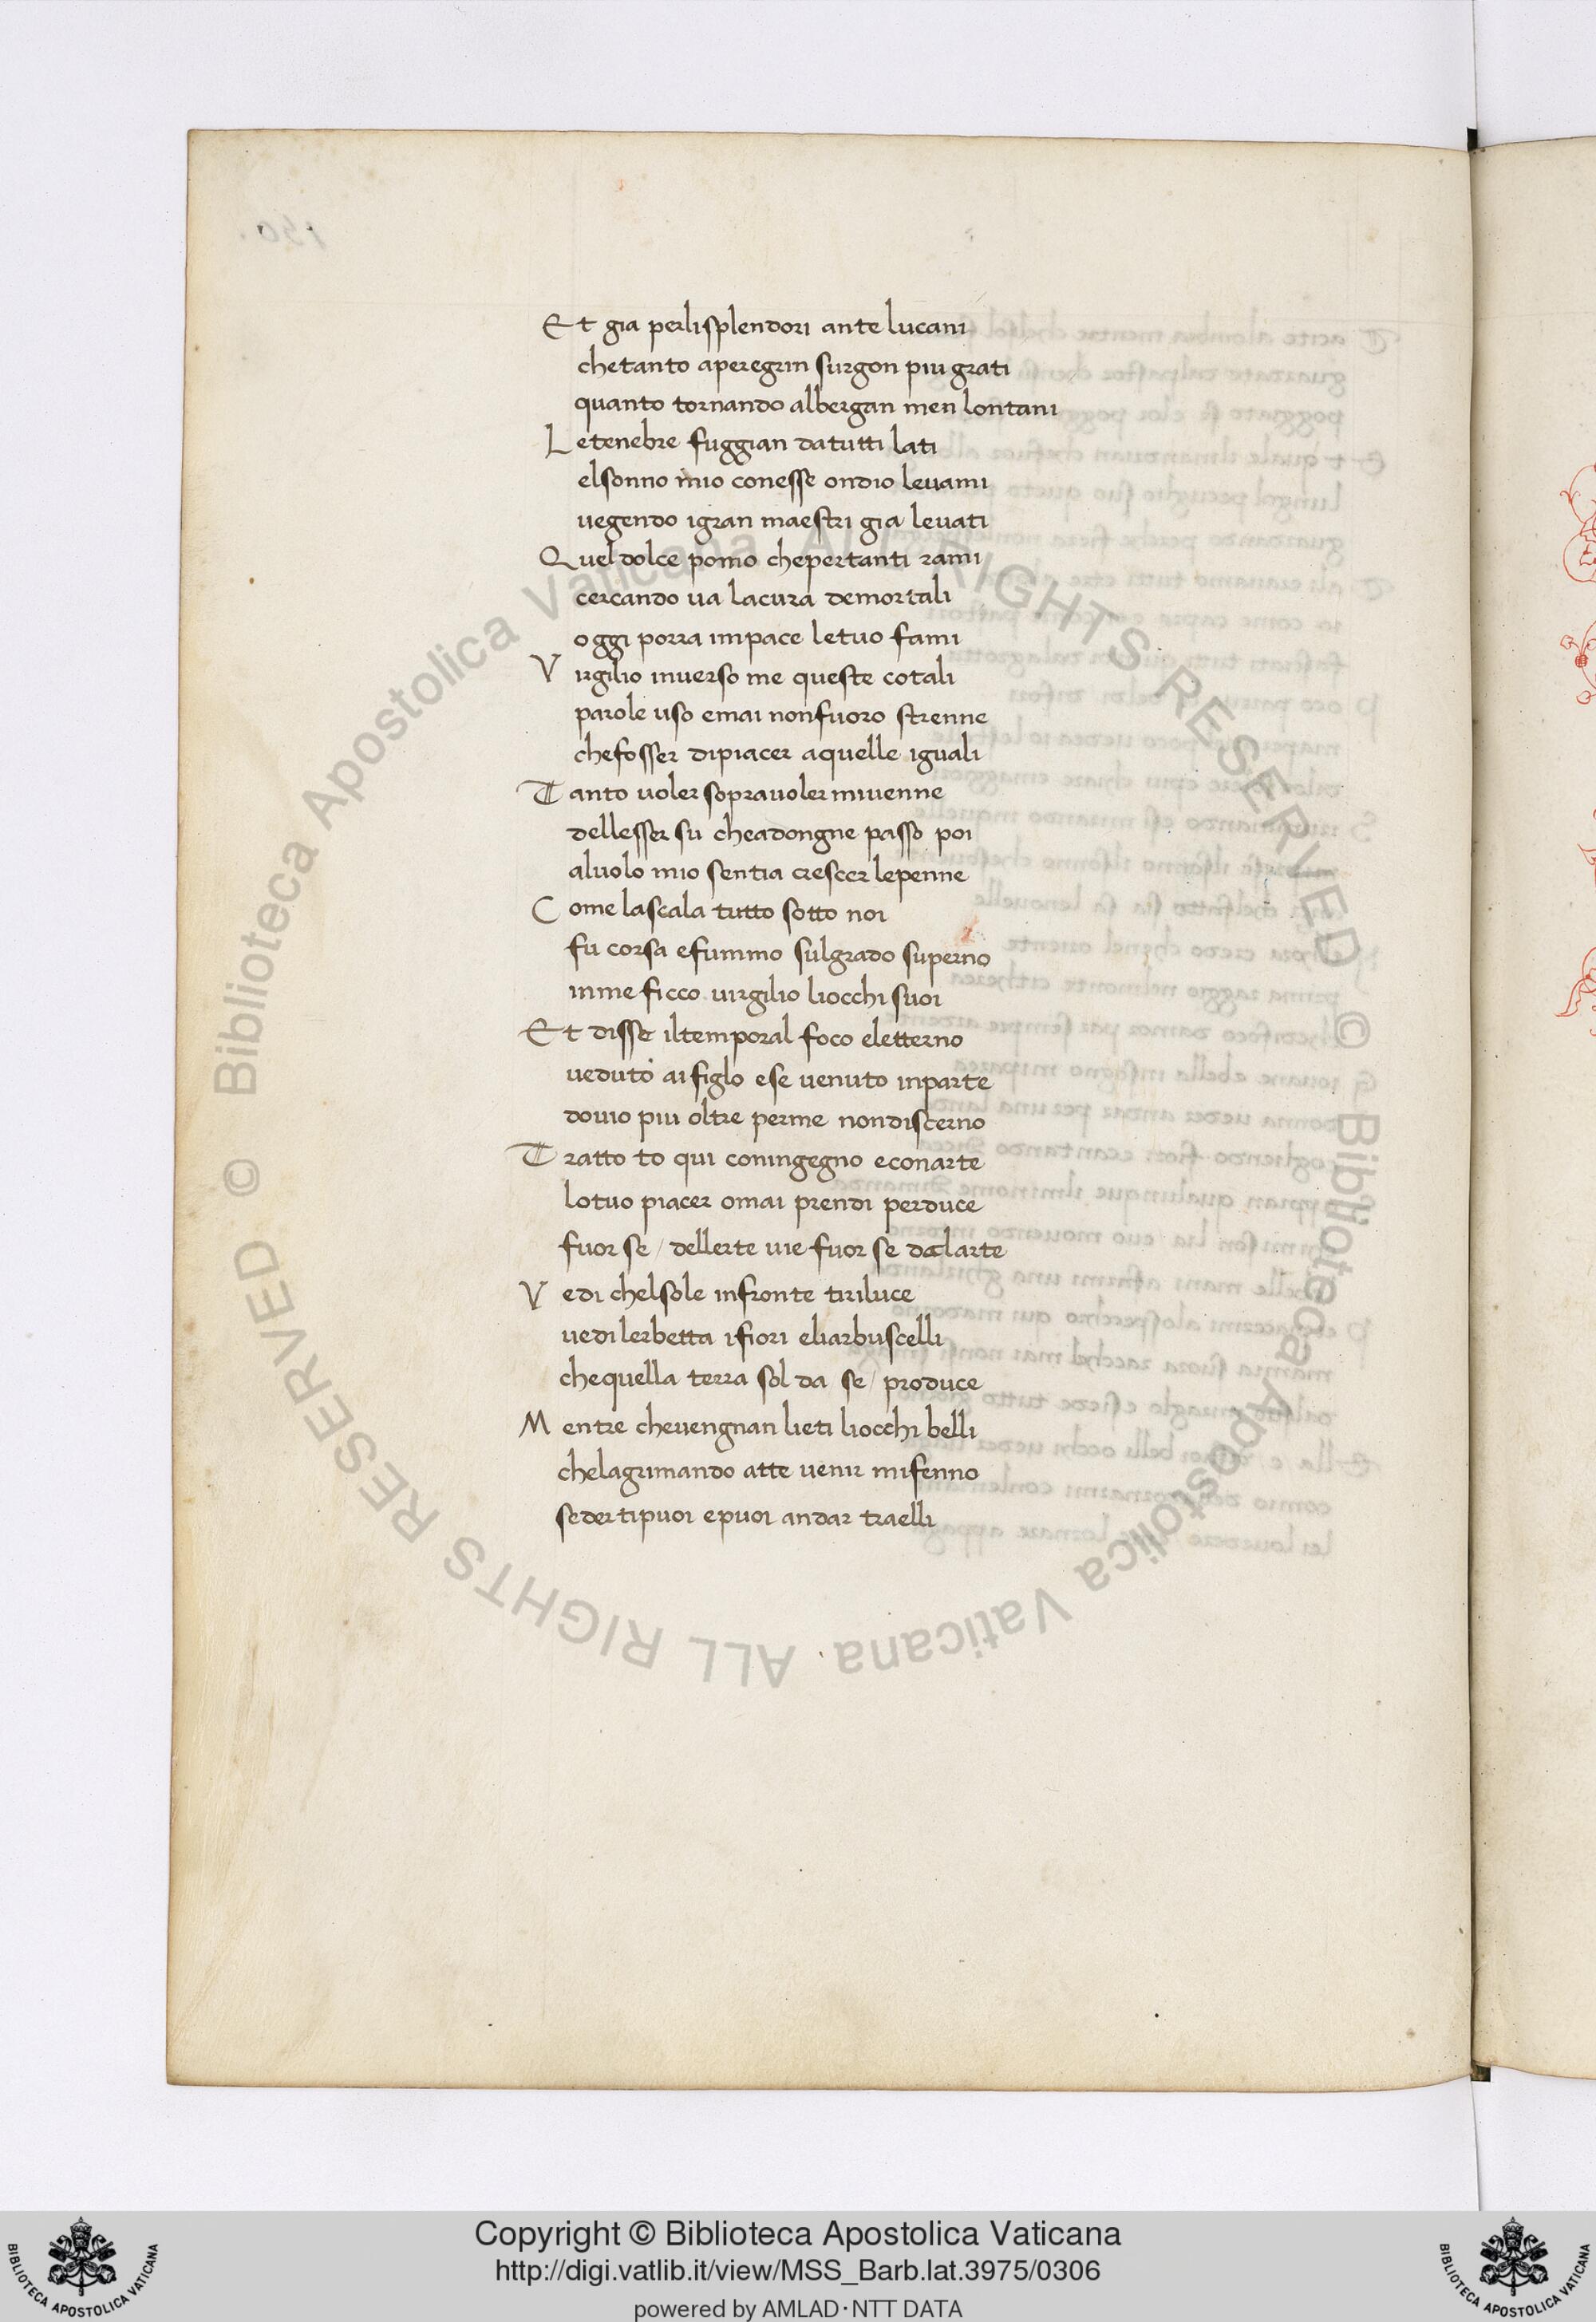 Et gia perlisplendori ante lucani
chetanto aperegrin surgon piu grati
quanto tornando albergan men lontani
Letenebre fuggian datutti lati
elsonno mio conesse ondio levami
uegendo igran maestri gia levati
Quel dolce pomo chepertanti rami
cercando ua lacura demortali
oggi porra impace letuo fami
Virgilio inuerso me queste cotali
parole uso emai nonfuoro strenne
chefosser dipiacer aquelle iguali
Tanto uoler sopra uoler miuenne
dellesser su cheadongne passo poi
aluolo mio sentia crescer lepenne
Come lascala tutto sotto noi
fu corsa efummo sulgrado superno
inme ficco uirgilio liocchi suoi
Et disse iltemporal foco eletterno
ueduto ai figlo ese uenuto inparte
douio piu oltre perme nondiscerno
Tratto to qui coningegno econarte
lotuo piacer omai prendi perduce
fuor se / dellerte uie fuor se dalarte
Vedi chelsole infronte tiriluce
uedi lerbetta ifiori eliarbuscelli
chequella terra sol da se / produce
Mentre cheuengnan lieti liocchi belli
chelagrimando atte uenir mifenno
seder tipuoi epuoi andar traelli
© Biblioteca Apostolica Vaticana ALL RIGHTS RESERVED
© Biblioteca Apostolica Vaticana ALL RIGHTS RESERVED
Copyright © Biblioteca Apostolica Vaticana
http://digi.vatlib.it/view/MSS_Barb.lat.3975/0306
powered by AMLAD·NTT DATA
BIBLIOTECA APOSTOLICA VATICANA
BIBLIOTECA APOSTOLICA VATICANA